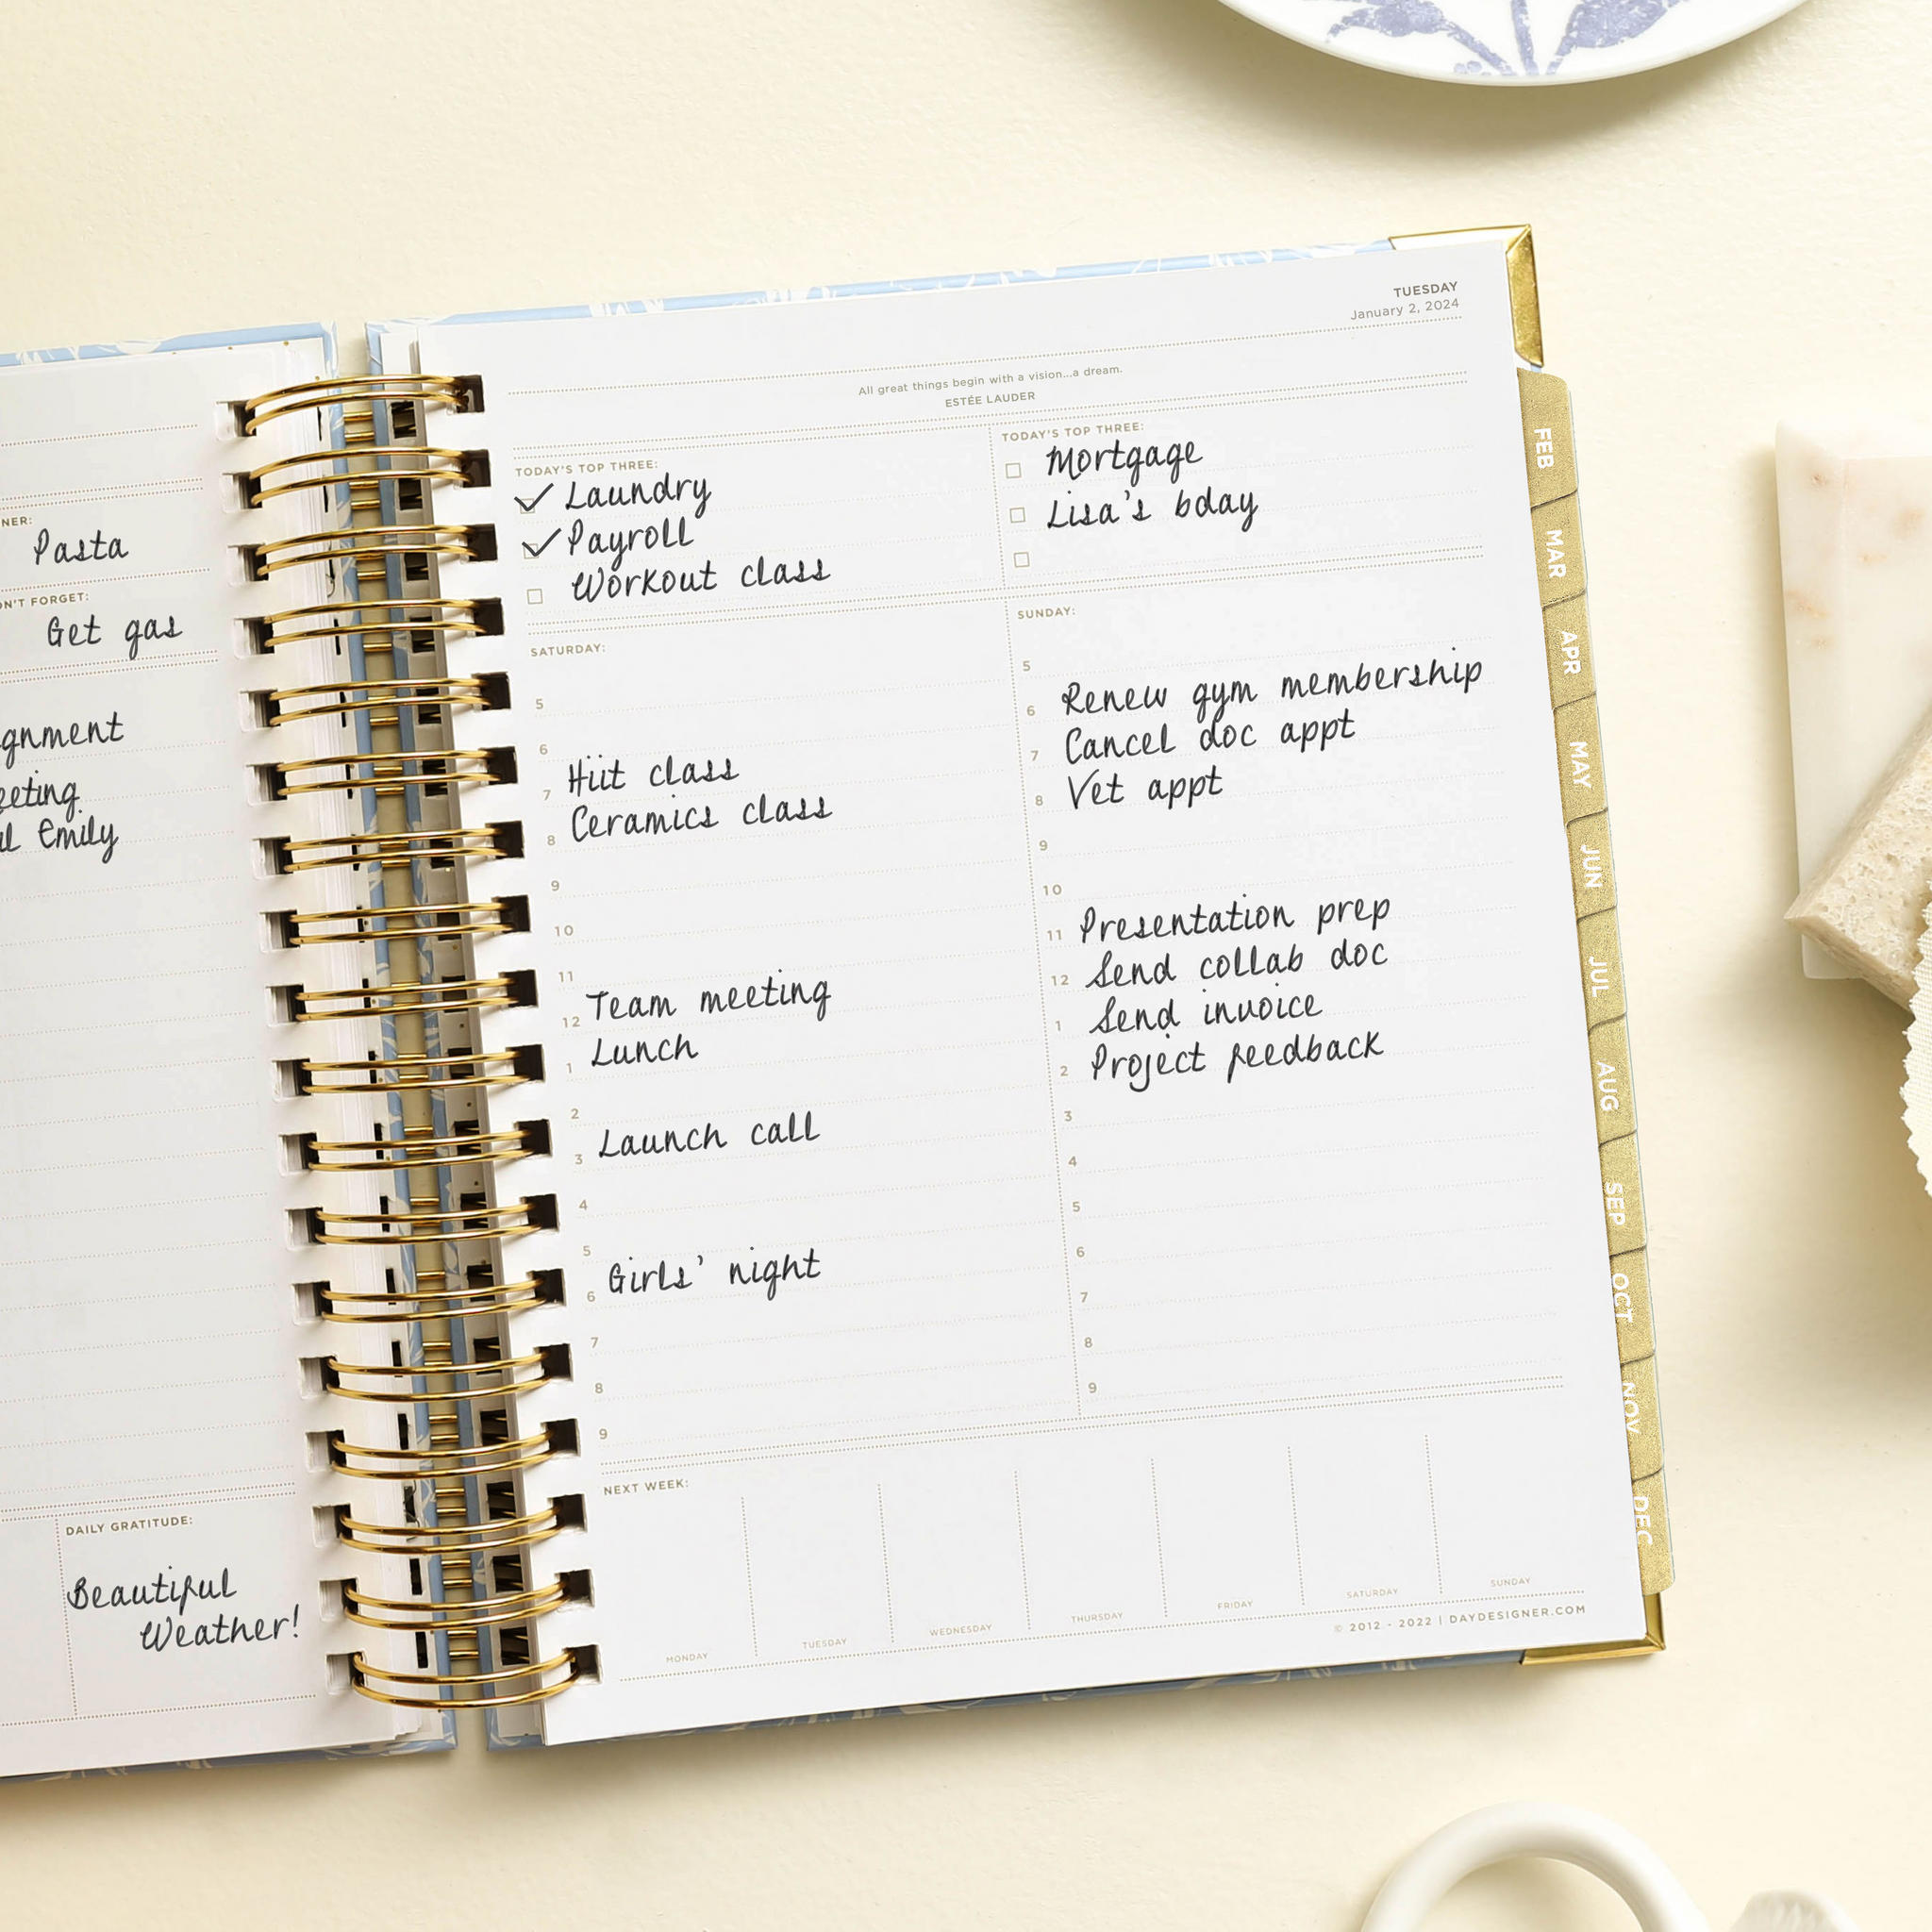 Pasta
Get gas
Emily
DAILY GRATITUDE:
Beautiful
Weather!
TUESDAY
January 2, 2024
All great things begin with a vision...a dream.
ESTÉE LAUDER
TODAY'S TOP THREE:
Laundry
Payroll
Workout class
TODAY'S TOP THREE:
Mortgage
Lisa's bday
SATURDAY:
5
6
7 Hiit class
8 Ceramics class
9
10
11
12 Team meeting
1 Lunch
2
3 Launch call
4
5
6 Girls' night
7
8
9
SUNDAY:
5
6 Renew gym membership
7 Cancel doc appt
8 Vet appt
9
10
11 Presentation prep
12 Send collab doc
1 Send invoice
2 Project feedback
3
4
5
6
7
8
9
NEXT WEEK:
MONDAY TUESDAY WEDNESDAY THURSDAY FRIDAY SATURDAY SUNDAY
© 2012 - 2022 | DAYDESIGNER.COM
FEB
MAR
APR
MAY
JUN
JUL
AUG
SEP
OCT
NOV
DEC